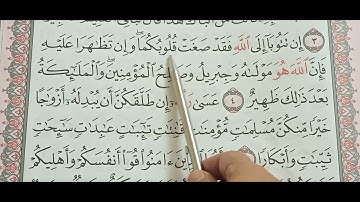 ٣ إِن تَتُوبَا إِلَى اللَّهِ فَقَدْ صَغَتْ قُلُوبُكُمَا وَإِن تَظَاهَرَا عَلَيْهِ
فَإِنَّ اللَّهَ هُوَ مَوْلَاهُ وَجِبْرِيلُ وَصَالِحُ الْمُؤْمِنِينَ وَالْمَلَائِكَةُ
بَعْدَ ذَلِكَ ظَهِيرٌ ٤ عَسَى إِن طَلَّقَكُنَّ أَن يُبْدِلَهُ أَزْوَاجًا
خَيْرًا مِنكُنَّ مُسْلِمَاتٍ مُؤْمِنَاتٍ قَانِتَاتٍ تَائِبَاتٍ عَابِدَاتٍ سَائِحَاتٍ
ثَيِّبَاتٍ وَأَبْكَارًا ءَامَنُوا قُوا أَنفُسَكُمْ وَأَهْلِيكُمْ